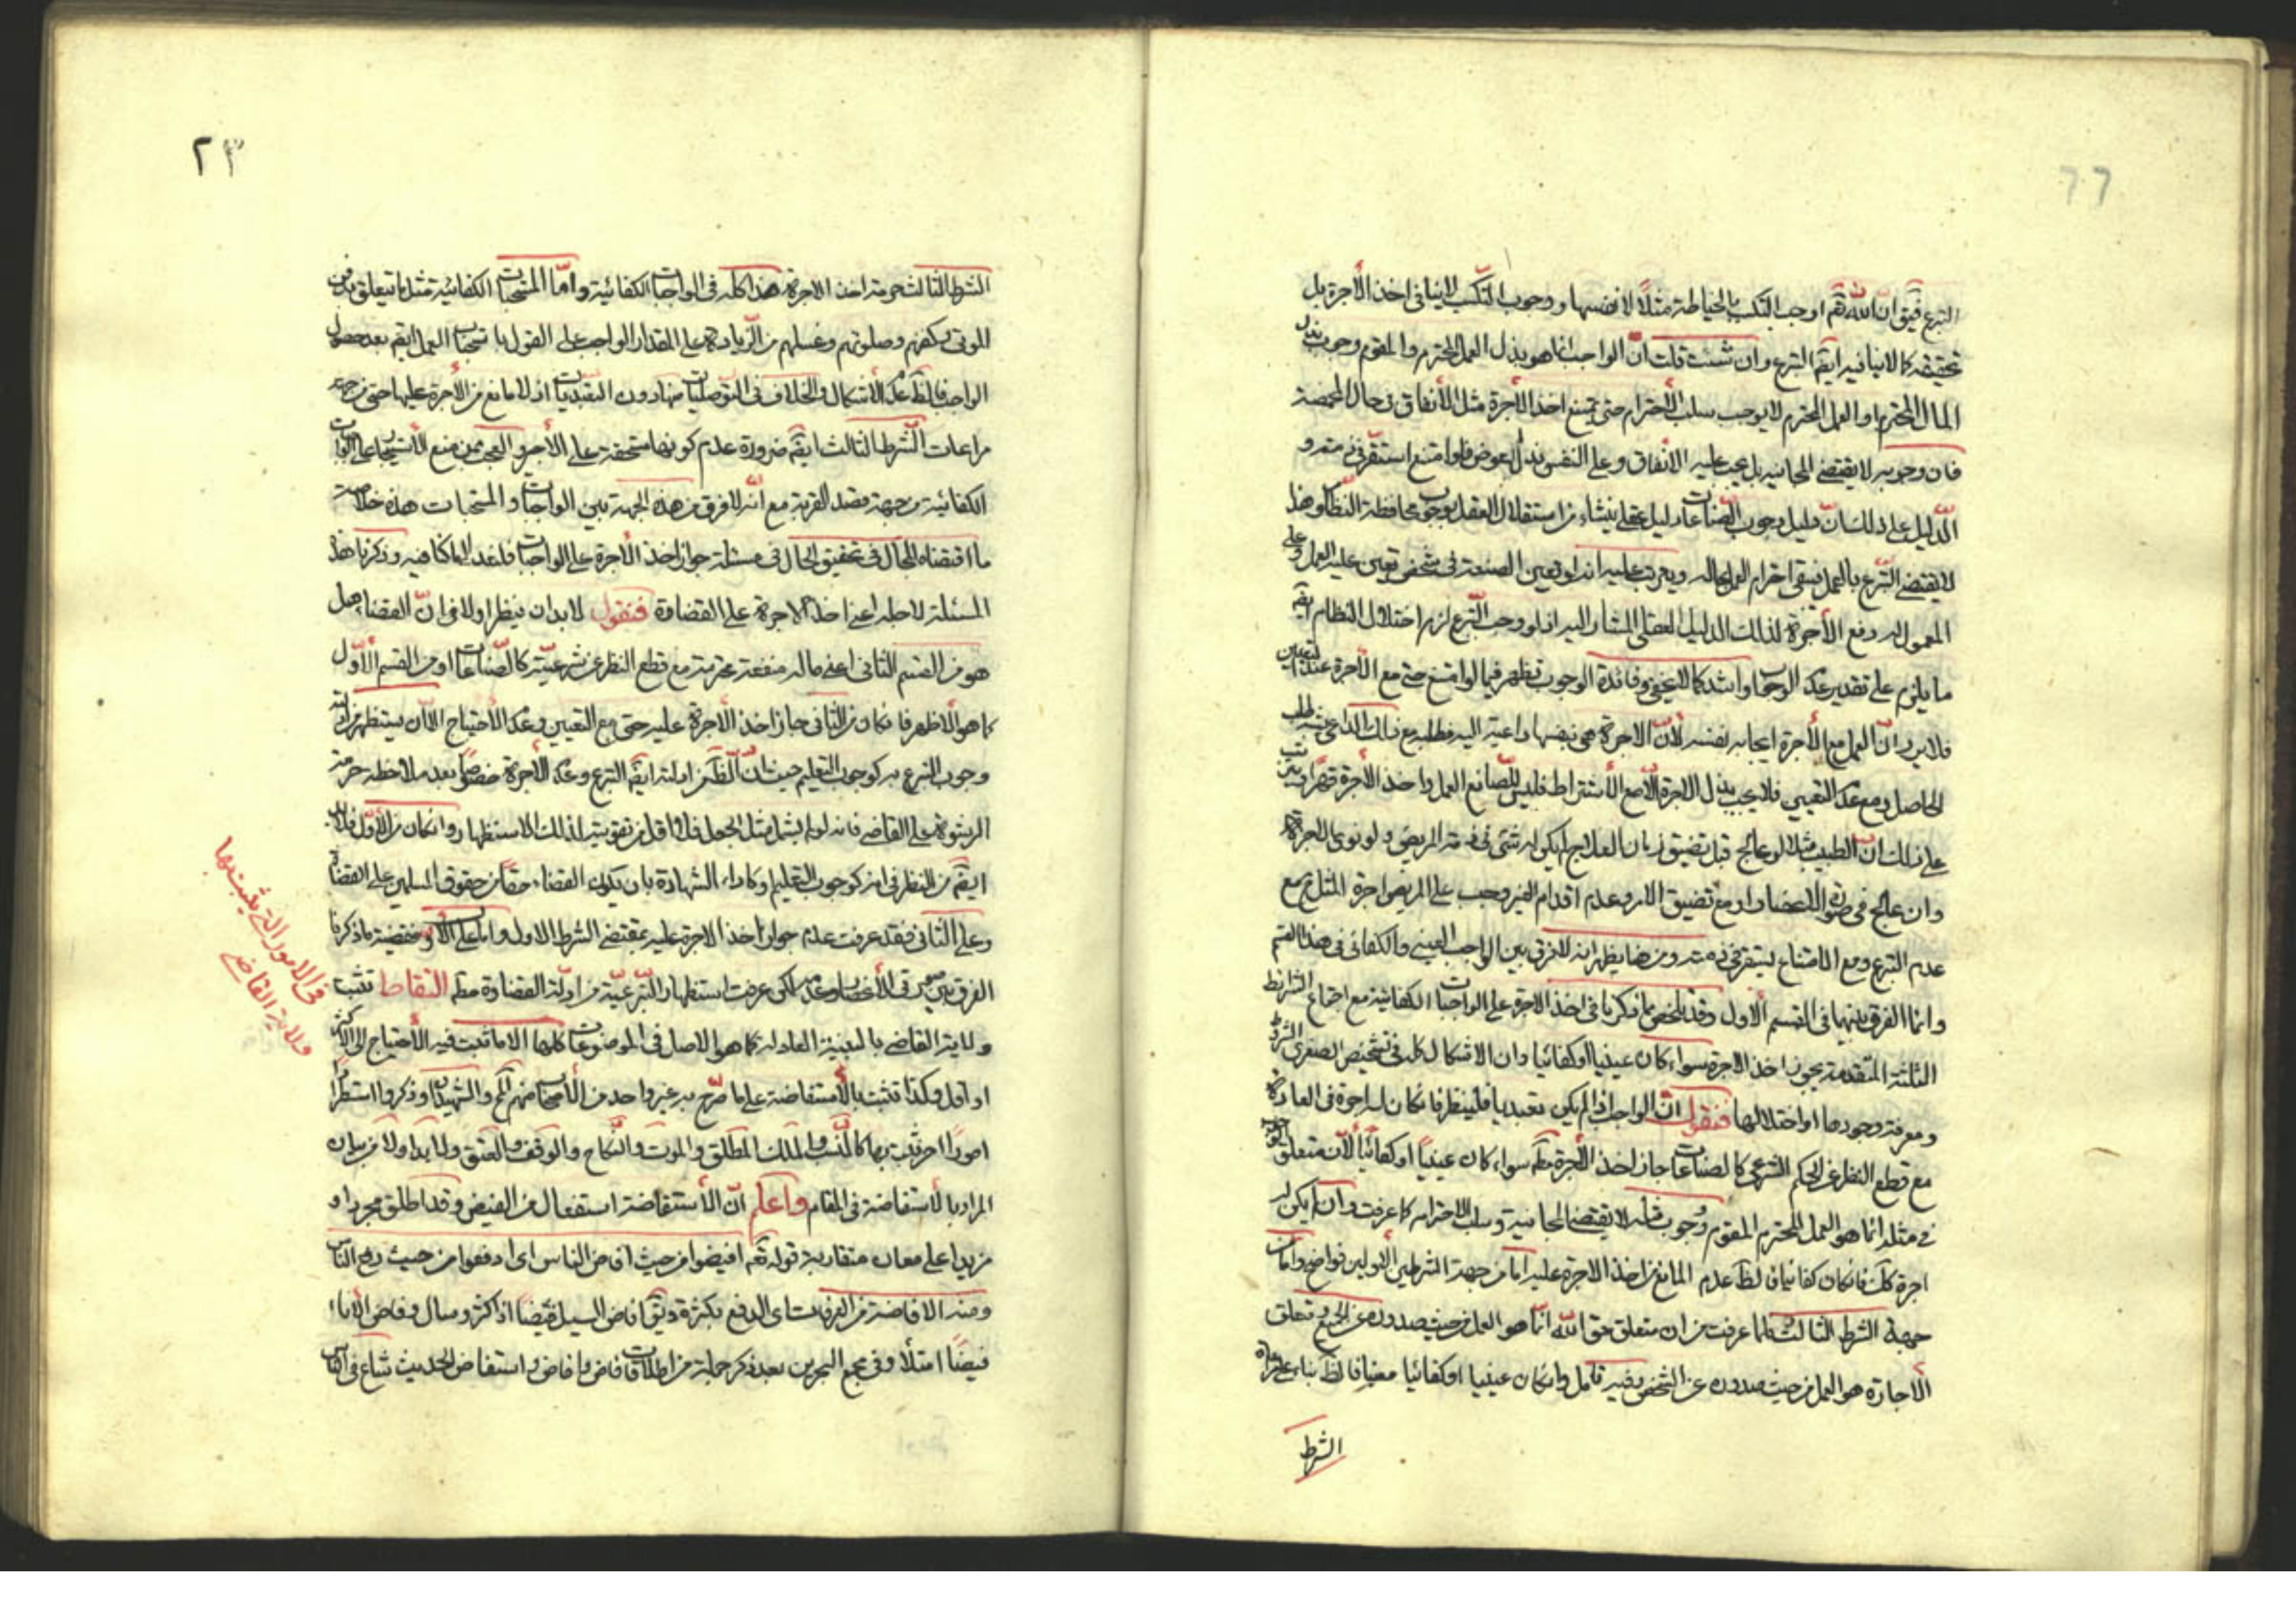 ٢٢
التبرع فيق ان الله تعم اوجب التكسب بالخياطة مثلا لا نفسها ووجوب التكسب لاينافى اخذ الأجرة بل
تحقيقه كا لا ينافيه ايضم التبرع وان شئت قلت ان الواجب انما هو بذل العمل المحترم والمقوم ووجوب بذل
المال المحترم او العمل المحترم لا يوجب سلب الأحترام حتى يمنع اخذ الأجرة مثل الأنفاق فى حال المخمصة
فان وجوبه لا يقتضى المجانيه بل يجب عليه الأنفاق وعلى النفس بذل العوض فلو امتنع استقر فى ذمته و
الدليل على ذلك ان دليل وجوب الصناعات دليل عقلى ينشاء من استقلال العقل بوجوب محافظة النظام وهذا
لا يقتضى التبرع بالعمل فيبقى احترام العمل بحاله ويترتب عليه انه لو تعين الصنعة فى شخص تعين عليه العمل وعلى
المعمول له دفع الأجرة لذلك الدليل العقلى المشار اليه اذ لو وجب التبرع لزم اختلال النظام بقم
ما يلزم على تقدير عدم الوجوب او اشد كما لا يخفى وفائدة الوجوب تظهر فيما لو امتنع حتى مع الأجرة عند التعيين
فلا يرد ان العمل مع الأجرة ايجابه بنفسه لأن الاجرة هى بنفسها داعية اليه فطلبه مع ذلك الداعى عنه طلب
الحاصل ومع عدم التعيين فلا يجب بذل الاجرة الا مع الأشتراط فليس للصانع العمل واخذ الأجرة قهرا ويترتب
على ذلك ان الطبيب مثلا لو عالج قبل تضيق زمان العلاج لم يكن له شئ فى ذمة المريض ولو نوى الاجرة
وان عالج فى صورة الأنحصار او مع تضيق الامر وعدم اقدام الغير وجب على المريض اجرة المثل مع
عدم التبرع ومع الامتناع يستقر فى ذمته ومن هنا يظهر انه لا فرق بين الواجب العينى والكفائى فى هذا القسم
وانما الفرق بينهما فى القسم الأول وقد تلخص مما ذكرنا فى اخذ الاجرة على الواجبات الكفائية مع اجتماع الشرائط
الثلثة المتقدمة يجوز اخذ الاجرة سواء كان عينيا او كفائيا وان الاشكال كله فى تشخيص الصغرى
ومعرفة وجودها او اختلالها فنقول ان الواجب اذا لم يكن تعبديا فلينظر فان كان له اجرة فى العادة
مع قطع النظر عن الحكم الشرعى كالصناعات جاز اخذ الأجرة مطم سواء كان عينيا او كفائيا لأن متعلق الوجوب
فى مثله انما هو العمل المحترم المقوم ووجوب مثله لا يقتضى المجانية وسلب الاحترام كما عرفت وان لم يكن له
اجرة كك فان كان كفائيا فالظ عدم المانع من اخذ الاجرة عليه اما من جهة الشرطين الأولين فواضح واما من
جهة الشرط الثالث فلما عرفت من ان متعلق حق الله انما هو العمل من حيث صدوره عن الجميع وتعلق
الأجارة هو العمل من حيث صدوره عن الشخص وفيه تامل وان كان عينيا او كفائيا معينا فالظ بناء على
الشرط
٢٣
الشرط الثالث حرمة اخذ الاجرة هذا كله فى الواجبات الكفائية واما المستحبات الكفائية مثل ما يتعلق بدفن
الموتى وكفنهم وصلوتهم وغسلهم من الزيادة على المقدار الواجب على القول باستحباب العمل ايضم بعد حصول
الواجب فالظ عدم الأشكال والخلاف فى التوصليات منها دون التعبديات اذ لا مانع من الأجرة عليها حتى من جهة
مراعات الشرط الثالث ايضم ضرورة عدم كونها مستحقة على الأجير والعجب ممن منع الأستيجار على الواجبات
الكفائية من جهة قصد القربة مع انه لا فرق من هذه الجهة بين الواجبات والمستحبات هذه خلاصة
ما اقتضاه المجال فى تحقيق الحال فى مسئلة جواز اخذ الأجرة على الواجبات فلنعد الى ما كنا فيه وذكرنا هذه
المسئلة لاجله اعنى اخذ الاجرة على القضاوة فنقول لا بد ان ينظر اولا فى ان القضاء هل
هو من القسم الثانى اعنى ماله منفعة محترمة مع قطع النظر عن شرعيته كالصناعات او من القسم الأول
كما هو الاظهر فان كان من الثانى جاز اخذ الأجرة عليه حتى مع التعيين وعدم الأحتياج الا ان يستظهر من ادلته
وجوب التبرع به كوجوب التعليم حيث ان الظم من ادلته ايضم التبرع وعدم الأجرة خصوصا بعد ملاحظه حرمة
الرشوة على القاضى فانه لو لم يشمل مثل الجعل فلا اقل من تقويته لذلك الاستظهار وان كان من الأول فلا بد
ايضم من النظر فى انه كوجوب التعليم وكاداء الشهادة بان يكون القضاء حقا من حقوق المسلمين على القضاة
وعلى الثانى فقد عرفت عدم جواز اخذ الاجرة عليه بمقتضى الشرط الاول واما على الأول فقضية ما ذكرنا
الفرق بين صورتى الأنحصار وعدمه لكن عرفت استظهار التبرعية من ادلة القضاوة مطم التقاط تثبت
ولاية القاضى بالبينة العادله كما هو الاصل فى الموضوعات كلها الا ما ثبت فيه الأحتياج الى الاكثر
او اقل وكذا تثبت بالأستفاضة على ما صرح به غير واحد من الأصحاب منهم المحقق والشهيدان وذكروا استطرادا
امورا اخر تثبت بها كالنسب والملك المطلق والموت والنكاح والوقف والعتق ولا بد اولا من بيان
المراد بالأستفاضة فى المقام واعلم ان الأستفاضة استفعال من الفيض وقد اطلق مجردا و
مزيدا على معان متقاربة قوله تعم افيضوا من حيث افاض الناس اى ادفعوا من حيث دفع الناس
ومنه الافاضة من العرفات اى الدفع بكثرة ويقم افاض السيل فيضا اذا كثر وسال وفاض الاناء
فيضا امتلأ وفى مجمع البحرين بعد ذكر جملة من اطلاقات فاض وافاض واستفاض الحديث شاع فى الناس
فى الامور التى يثبت بها
ولاية القاضى